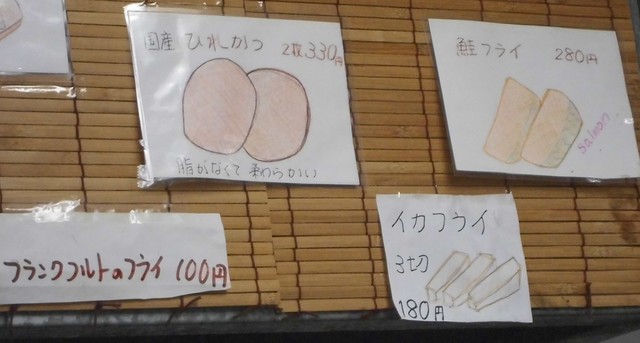 国産 ひれかつ 2枚 330円
脂がなくて 柔わらかい
鮭フライ 280円
salmon
フランクフルトのフライ 100円
イカフライ
3切
180円